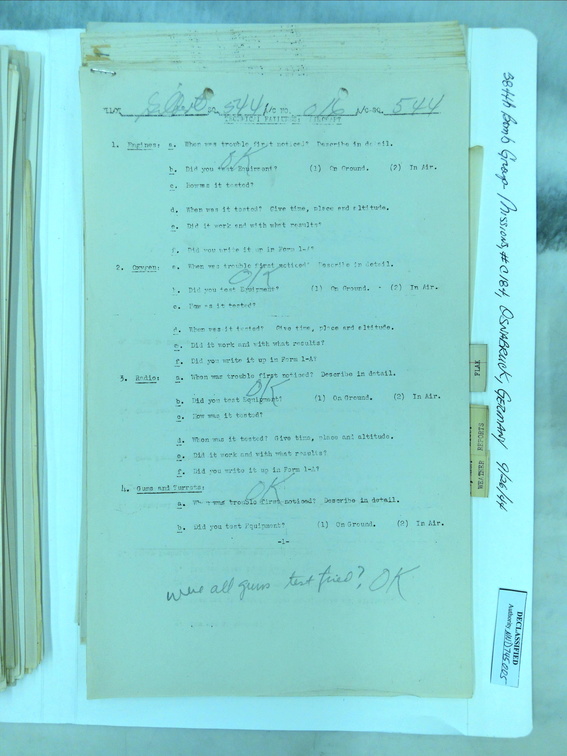 SQ. 544 A/C NO. 016 A/C SQ. 544
1. Engines: a. When was trouble first noticed? Describe in detail.
OK
b. Did you test Equipment? (1) On Ground. (2) In Air.
c. How was it tested?
d. When was it tested? Give time, place and altitude.
e. Did it work and with what results?
f. Did you write it up in Form 1-A?
2. Oxygen: a. When was trouble first noticed? Describe in detail.
OK
b. Did you test Equipment? (1) On Ground. (2) In Air.
c. How was it tested?
d. When was it tested? Give time, place and altitude.
e. Did it work and with what results?
f. Did you write it up in Form 1-A?
3. Radio: a. When was trouble first noticed? Describe in detail.
OK
b. Did you test Equipment? (1) On Ground. (2) In Air.
c. How was it tested?
d. When was it tested? Give time, place and altitude.
e. Did it work and with what results?
f. Did you write it up in Form 1-A?
4. Guns and Turrets:
OK
a. When was trouble first noticed? Describe in detail.
b. Did you test Equipment? (1) On Ground. (2) In Air.
-1-
were all guns test fired? OK
384th Bomb Group / Missions, # 184, OSNABRUCK, GERMANY 9/26/44
DECLASSIFIED
Authority NND 745005